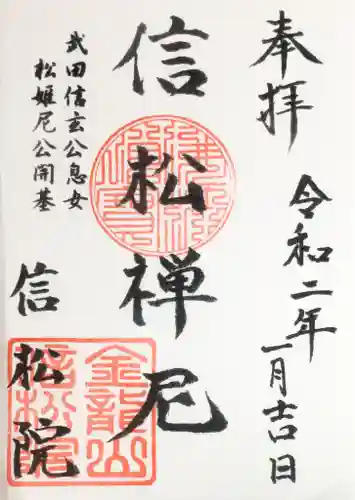 奉拝
令和二年一月吉日
信松禅尼
武田信玄公息女
松姫尼公開基
信松院
金龍山
信松院